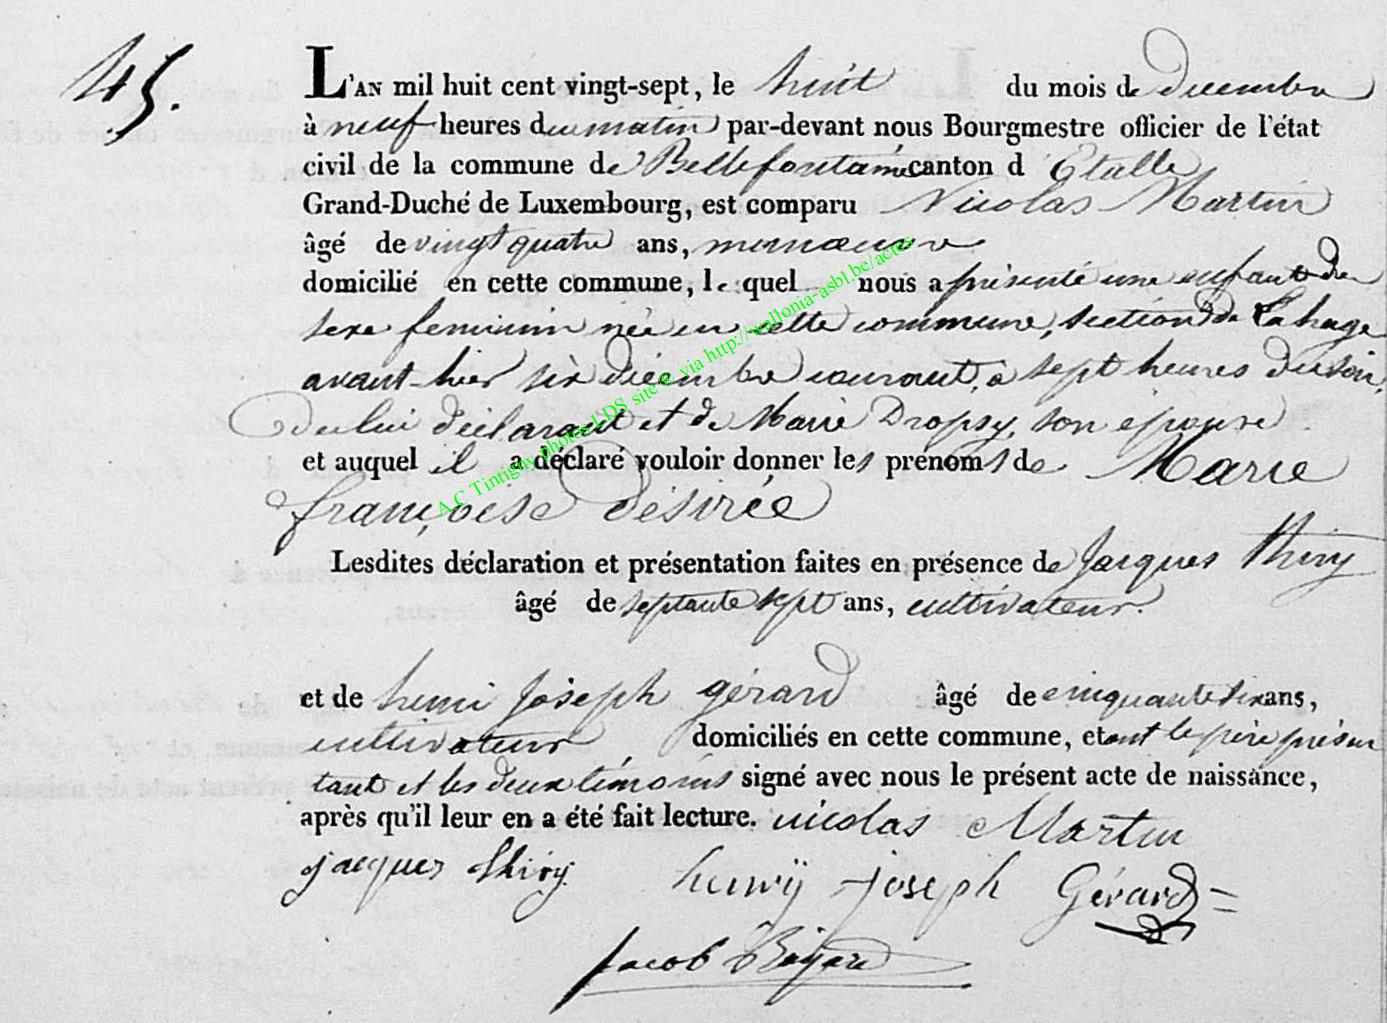 45.
L'AN mil huit cent vingt-sept, le huit du mois de decembre
à neuf heures du matin par-devant nous Bourgmestre officier de l'état
civil de la commune de Bellefontaine canton d'Etalle
Grand-Duché de Luxembourg, est comparu Nicolas Martin
âgé de vingt quatre ans, manœuvre
domicilié en cette commune, le quel nous a présenté une enfant du
sexe feminin née en cette commune, section de Lahage
avant-hier six décembre courant, à sept heures du soir,
de lui déclarant et de Marie Dropsy, son épouse.
et auquel il a déclaré vouloir donner les prénoms de Marie
françoise désirée
Lesdites déclaration et présentation faites en présence de Jacques Thiry
âgé de septante sept ans, cultivateur.
et de henri Joseph gérard âgé de cinquante six ans,
cultivateur domiciliés en cette commune, et ont le père présen
tant et les deux témoins signé avec nous le présent acte de naissance,
après qu'il leur en a été fait lecture. nicolas Martin
jacques thiry henrÿ joseph Gérard
Jacob
A.C Tintigny photos LDS site @ via http://wallonia-asbl.be/actes